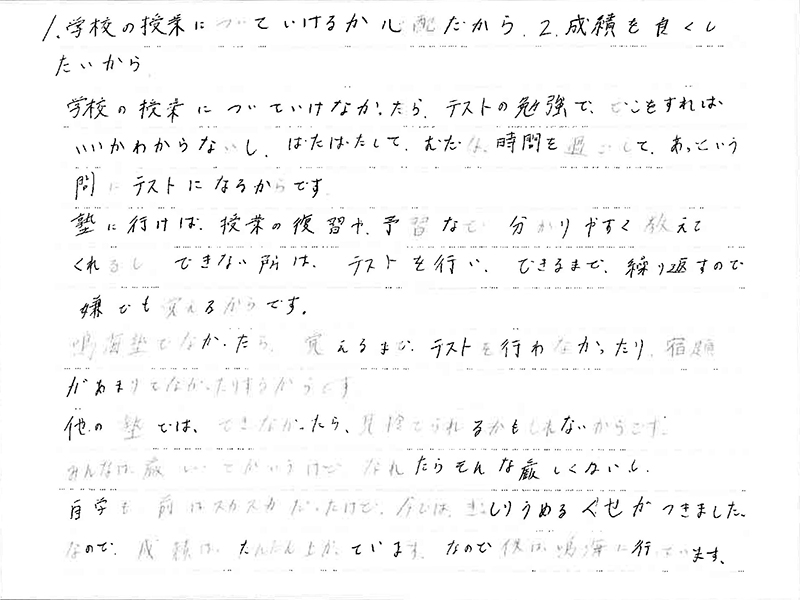 1.学校の授業についていけるか心配だから. 2.成績を良くし
たいから
学校の授業についていけなかったら、テストの勉強で、どこをすれば
いいかわからないし、ばたばたして、むだな時間を過ごして、あっという
間にテストになるからです
塾に行けば、授業の復習や、予習など分かりやすく教えて
くれるし できない所は、テストを行い、できるまで、繰り返すので
嫌でも覚えるからです。
鳴海塾でなかったら、覚えるまで、テストを行わなかったり、宿題
があまりでなかったりするからです
他の塾では、できなかったら、見捨てられるかもしれないからです。
みんなは、厳しいってかいうけど なれたらそんな厳しくないし、
自学も前はスカスカだったけど、今では、きっしりうめるくせがつきました。
なので、成績は、だんだん上がっています。なので僕は鳴海に行っています。